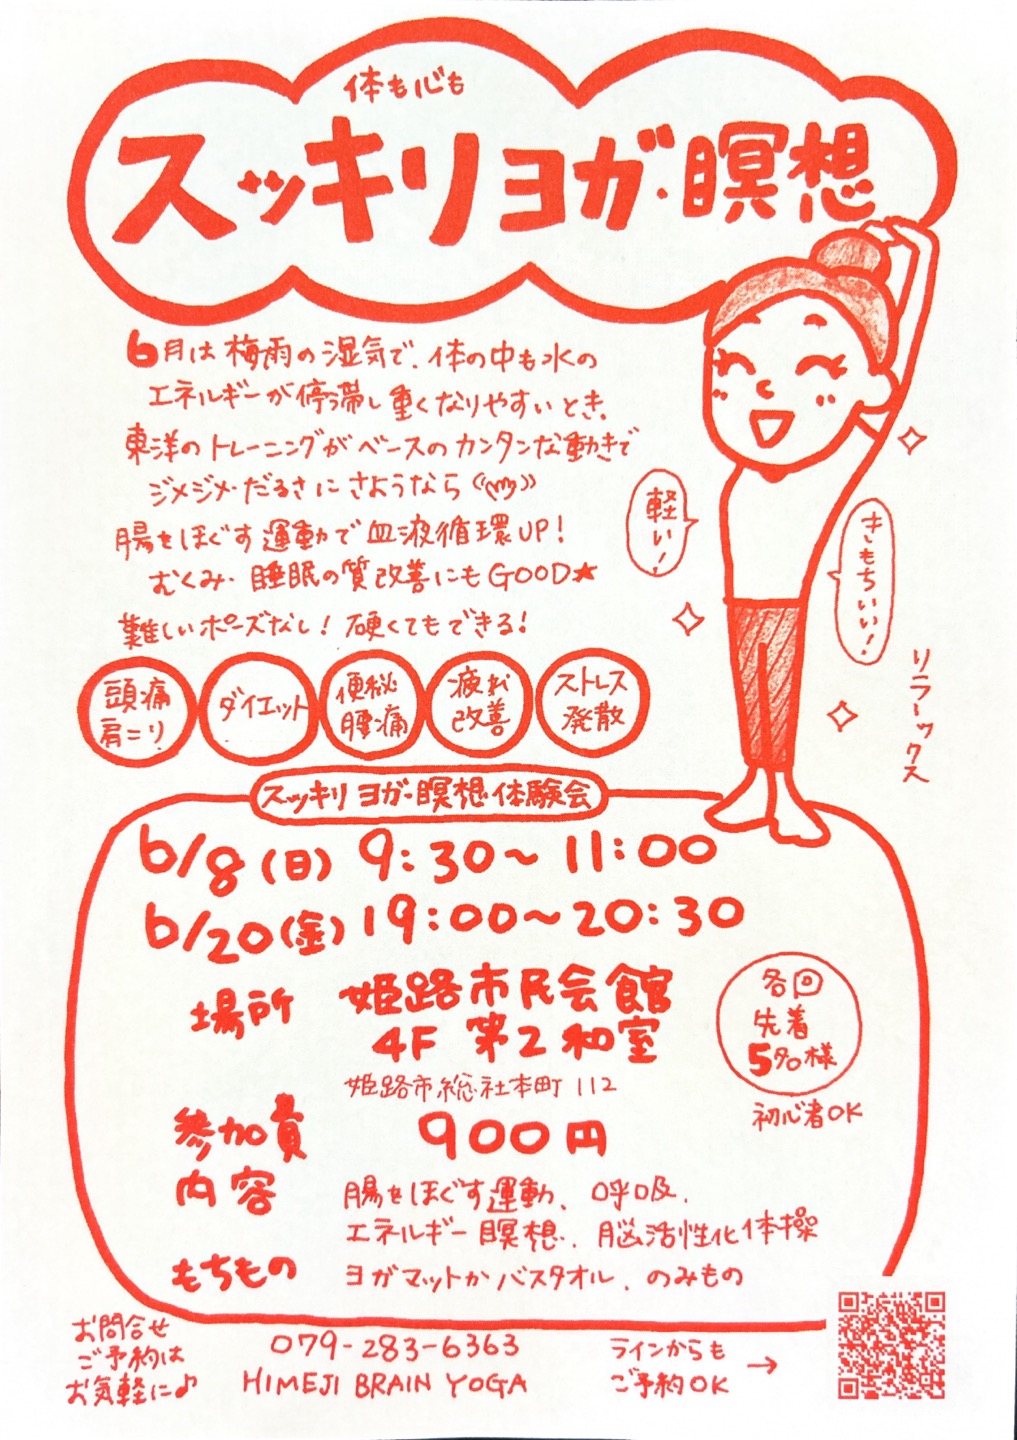 体も心も
スッキリヨガ・瞑想
6月は梅雨の湿気で、体の中も水の
エネルギーが停滞し重くなりやすいとき。
東洋のトレーニングがベースのカンタンな動きで
ジメジメ・だるさにさようなら
腸をほぐす運動で血液循環UP!
むくみ・睡眠の質改善にもGOOD★
難しいポーズなし!硬くてもできる!
軽い!
きもちいい!
リラーックス
頭痛
肩こり
ダイエット
便秘
腰痛
疲れ
改善
ストレス
発散
スッキリヨガ・瞑想体験会
6/8(日) 9:30~11:00
6/20(金) 19:00~20:30
場所 姫路市民会館
4F 第2和室
姫路市総社本町112
各回
先着
5名様
初心者OK
参加費 900円
内容 腸をほぐす運動、呼吸、
エネルギー瞑想、脳活性化体操
もちもの ヨガマットかバスタオル、のみもの
お問合せ
ご予約は
お気軽に♪
079-283-6363
HIMEJI BRAIN YOGA
ラインからも
ご予約OK →